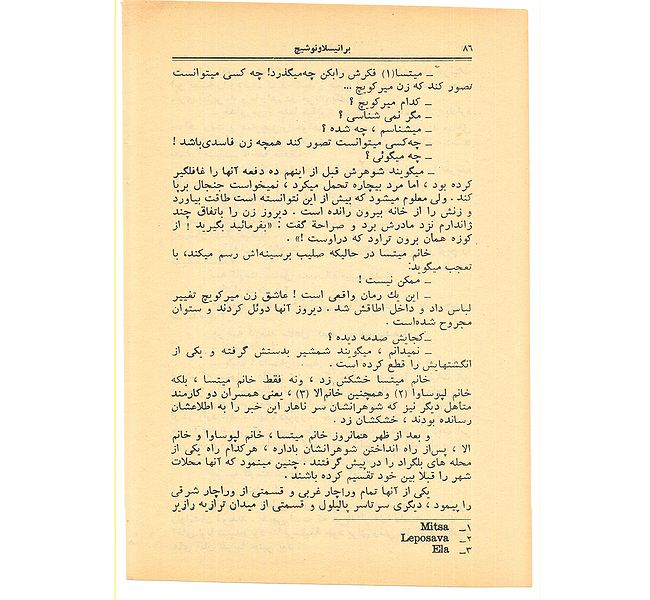 ۸۶
برانیسلاونوشیچ
ــ میتسا(۱) فکرش رابکن چه‌میگذرد! چه کسی میتوانست
تصور کند که زن میرکویچ ...
ــ کدام میرکویچ ؟
ــ مگر نمی شناسی ؟
ــ میشناسم ، چه شده ؟
ــ چه‌کسی میتوانست تصور کند همچه زن فاسدی‌باشد !
ــ چه میگوئی ؟
ــ میگویند شوهرش قبل از اینهم ده دفعه آنها را غافلگیر
کرده بود ، اما مرد بیچاره تحمل میکرد ، نمیخواست جنجال برپا
کند . ولی معلوم میشود که بیش از این نتوانسته است طاقت بیاورد
و زنش را از خانه بیرون رانده است . دیروز زن را باتفاق چند
ژاندارم نزد مادرش برد و صراحة گفت : «بفرمائید بگیرید ! از
کوزه همان برون تراود که دراوست !» .
خانم میتسا در حالیکه صلیب برسینه‌اش رسم میکند، با
تعجب میگوید:
ــ ممکن نیست !
ــ این یك رمان واقعی است ! عاشق زن میرکویچ تغییر
لباس داد و داخل اطاقش شد . دیروز آنها دوئل کردند و ستوان
مجروح شده‌است .
ــ کجایش صدمه دیده ؟
ــ نمیدانم ، میگویند شمشیر بدستش گرفته و یکی از
انگشتهایش را قطع کرده است .
خانم میتسا خشکش زد ، ونه فقط خانم میتسا ، بلکه
خانم لپوساوا (۲) وهمچنین خانم‌الا (۳) ، یعنی همسران دو کارمند
متاهل دیگر نیز که شوهرانشان سر ناهار این خبر را به اطلاعشان
رسانده بودند ، خشکشان زد .
و بعد از ظهر همانروز خانم میتسا ، خانم لپوساوا و خانم
الا ، پس‌از راه انداختن شوهرانشان باداره ، هرکدام راه یکی از
محله های بلگراد را در پیش گرفتند . چنین مینمود که آنها محلات
شهر را قبلا بین خود تقسیم کرده باشند .
یکی از آنها تمام وراچار غربی و قسمتی از وراچار شرقی
را پیمود ، دیگری سرتاسر پالیلول و قسمتی از میدان ترازیه رازیر
۱ــ Mitsa
۲ــ Leposava
۳ــ Ela